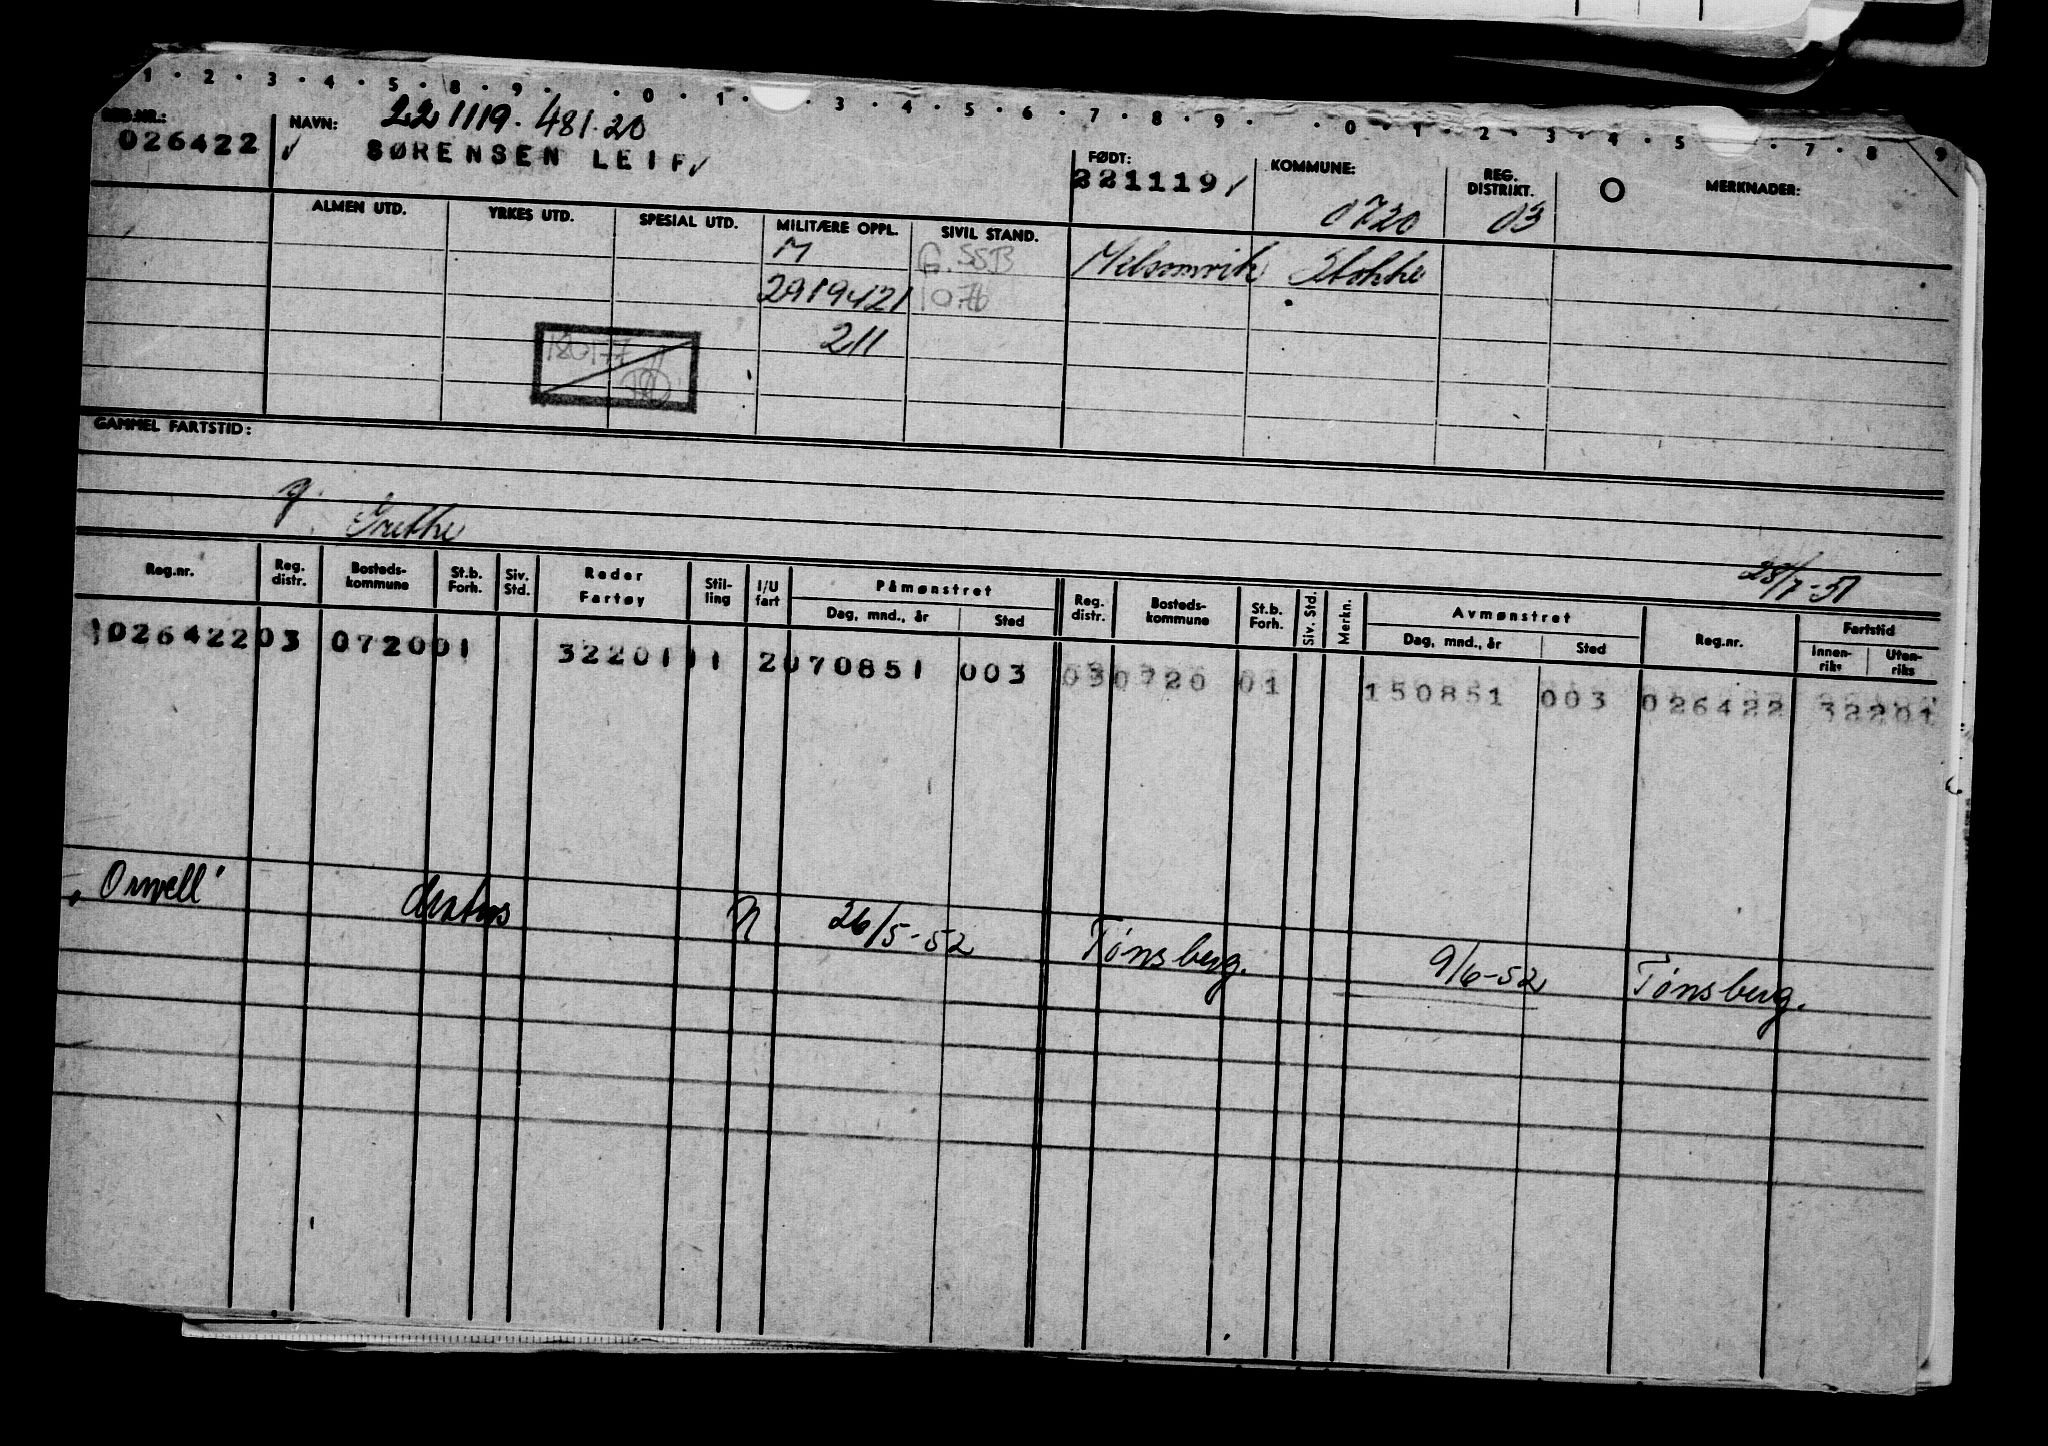 1 · 2 · 3 · 4 · 5 · 8 · 9 · · 0 · 1 · 3 · 4 · 5 · 6 · 7 · 8 · 9 · · 0 · 1 · 2 · 3 · 4 · 5 · 7 · 8 9
REG.NR.: NAVN: 221119. 481.20
026422 SØRENSEN LEIF
FØDT: KOMMUNE: REG. DISTRIKT. O MERKNADER:
221119 0720 03
ALMEN UTD. YRKES UTD. SPESIAL UTD. MILITÆRE OPPL. SIVIL STAND.
M G. SSB Melsomvik Stokke
2919421 1076
211
180177
GAMMEL FARTSTID:
g. Grethe
28/7-51
Reg.nr. Reg. distr. Bosteds-kommune St.b. Forh. Siv. Std. Reder Fartøy Stil-ling I/U fart Påmønstret Reg. distr. Bosteds-kommune St.b. Forh. Siv. Std. Merkn. Avmønstret Reg.nr. Fartstid
Dag, mnd., år Sted Dag, mnd., år Sted Innen-riks Uten-riks
102642203 072001 3220111 2070851 003 030720 01 150851 003 026422 32201
"Orwell" N 26/5-52 Tønsberg. 9/6-52 Tønsberg.